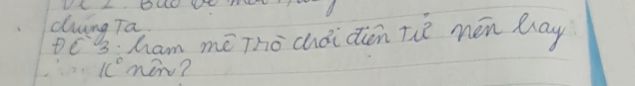 chúng Ta
ĐỀ 3: ham mê Trò chơi điện Tử nên hay
K° nên?